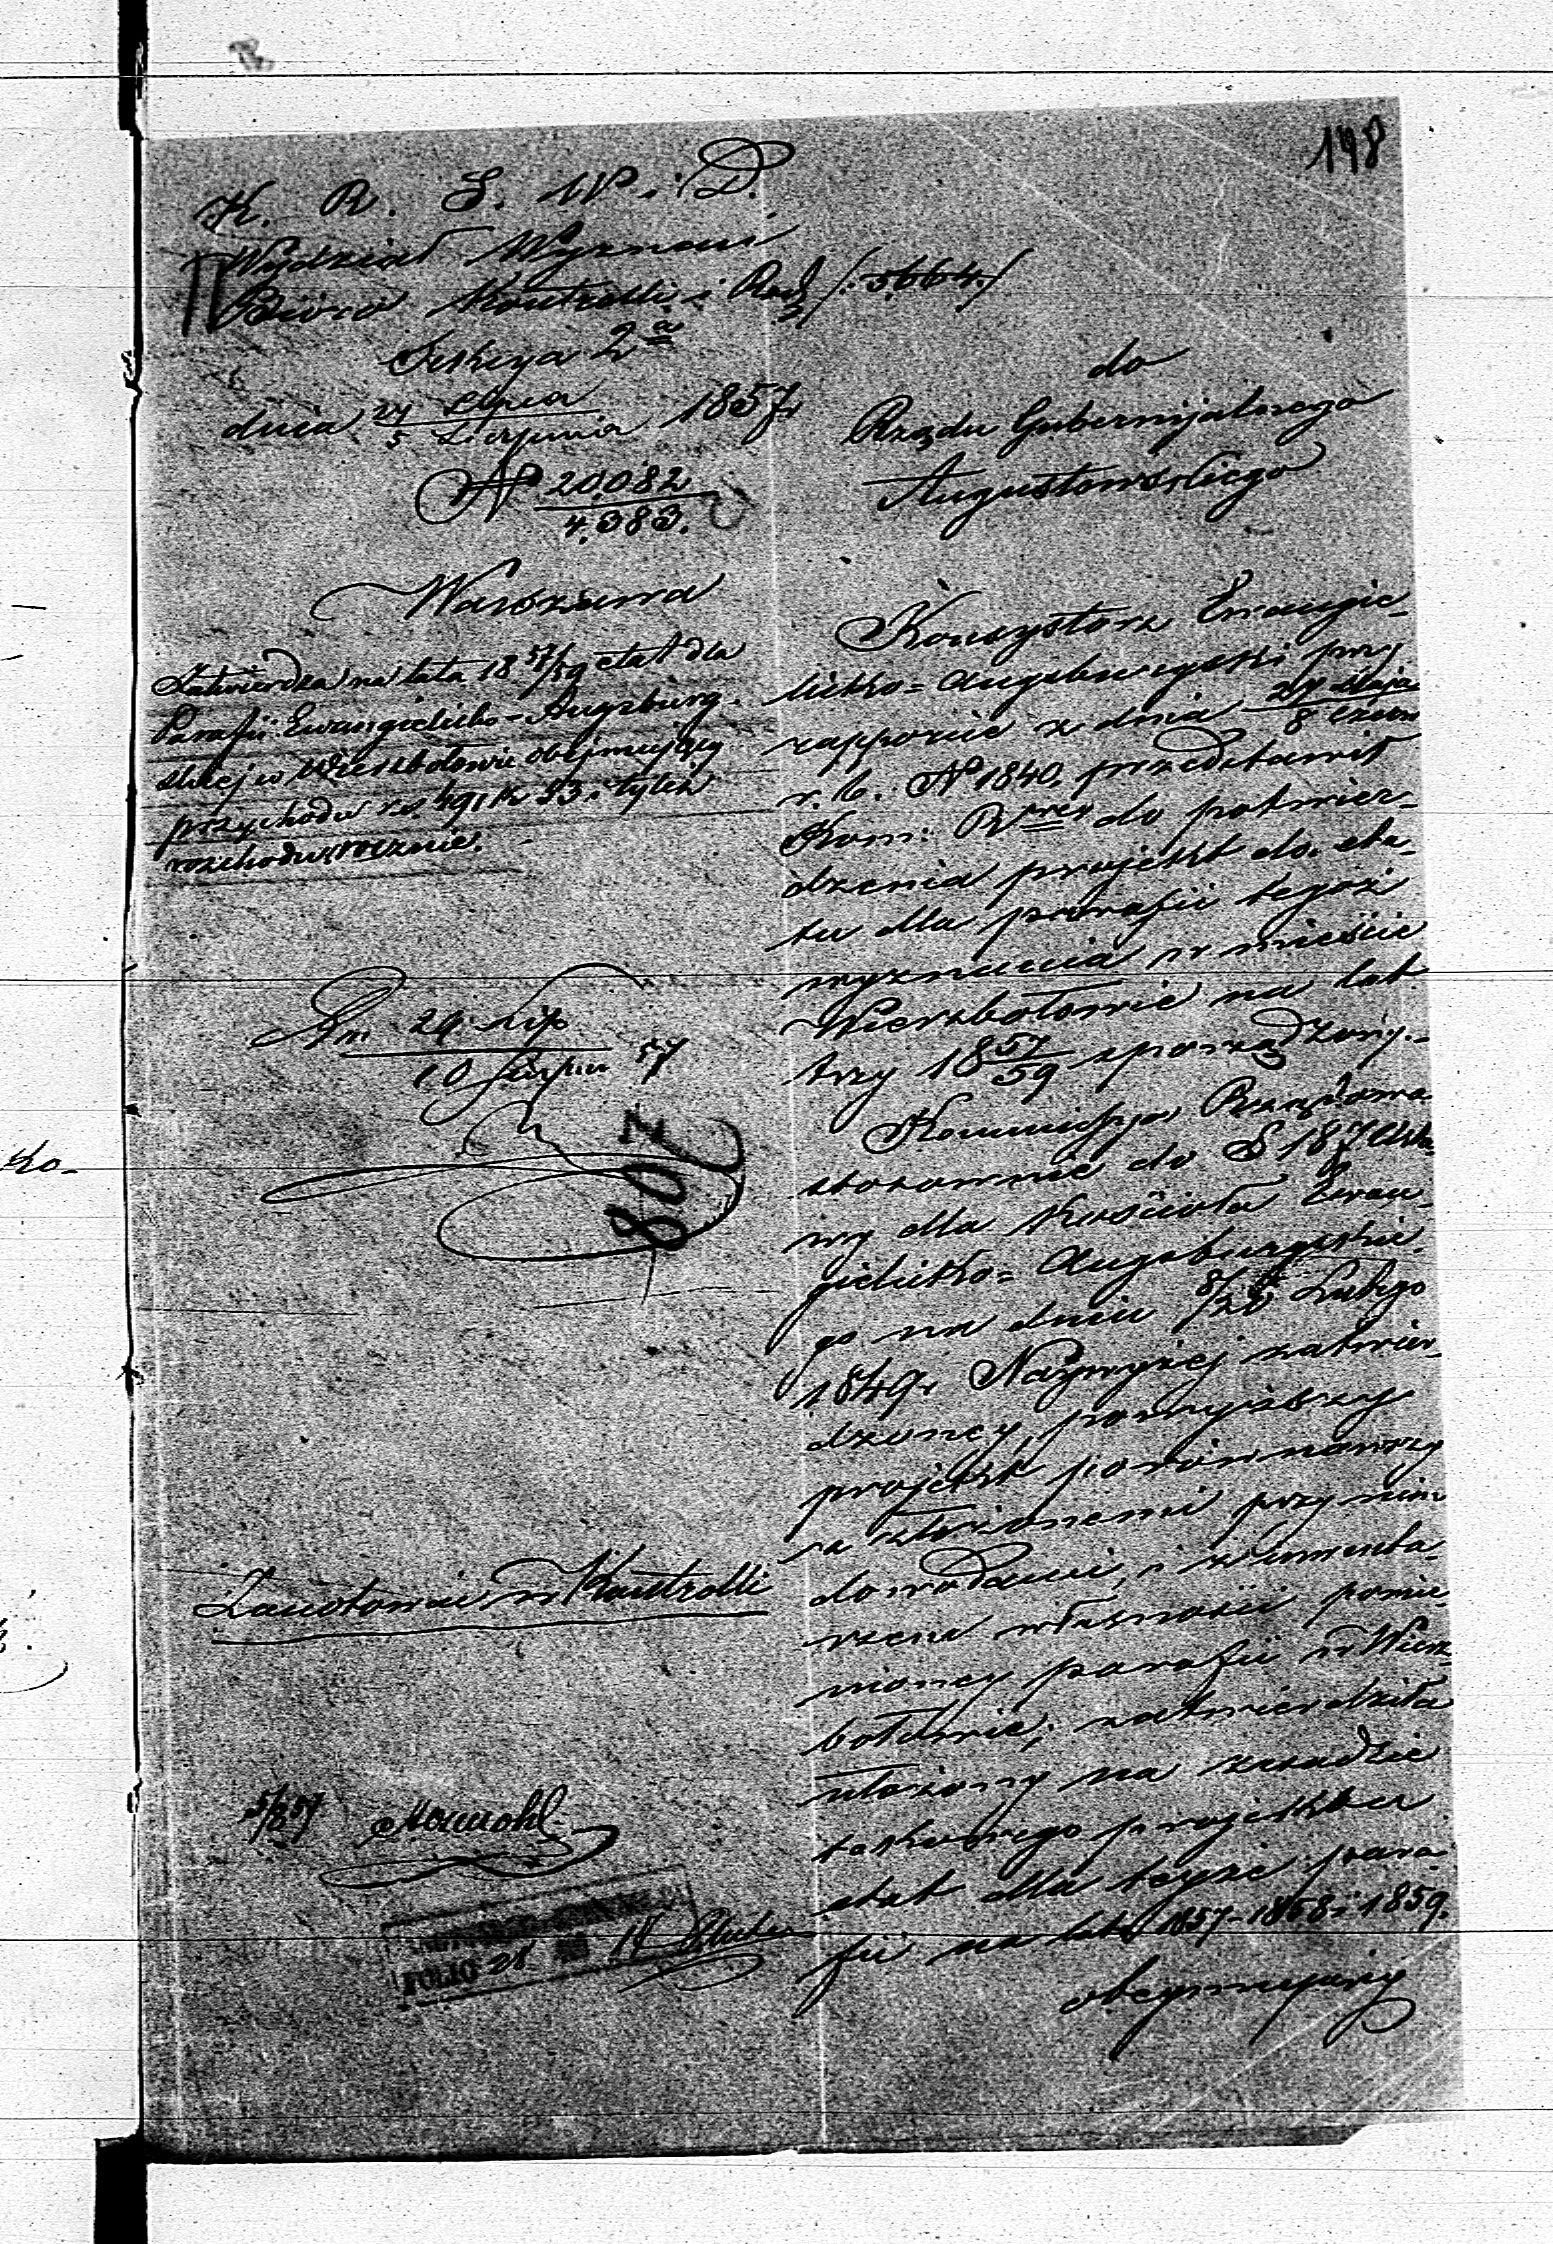 148
K. R. S. W. i D.
Wydział Wyznań
Biuro Kontrolli i Rach /:5664:/
Sekcya 2a
dnia 24 Lipca / 5 Sierpnia 1857r
No 20,082 / 4,383.
Warszawa
Zatwierdza na lata 18 57/59 etat dla
Parafii Ewangielicko-Augsburg.
skiej w Wierzbołowie obejmujący
przychodu rs. 491 k 33 i tyleż
rozchodu rocznie.
Dn 29 Lip / 10 Sierpn 57
807
Zanotować w Kontrolli
5/8 57
FOLIO 28
do
Rządu Gubernijalnego
Augustowskiego
Konsystorz Ewangie-
licko-Augsburgski przy
rapporcie z dnia 27 Maja / 8 Czerw
r. b. No 1840, przedstawił
Kom: Rwej do potwier-
dzenia projekt do eta-
tu dla parafii tegoż
wyznania w mieście
Wierzbołowie na lat
trzy 18 57/59 sporządzony.-
Kommissya Rządowa
stosownie do § 187 Usta-
wy dla Kościoła Ewan-
gielicko-Augsburgskie-
go na dniu 8/20 Lutego
1849r Najwyżej zatwier-
dzonej, powyższy
projekt porównawszy
z złożonemi przy nim
dowodami, i
własności pomie-
nionej parafii w Wierz-
bołowie; zatwierdziła
ułożony na zasadzie
takowego projektu
etat dla tejże para-
fii na lata 1857-1858 i 1859.
obejmujący